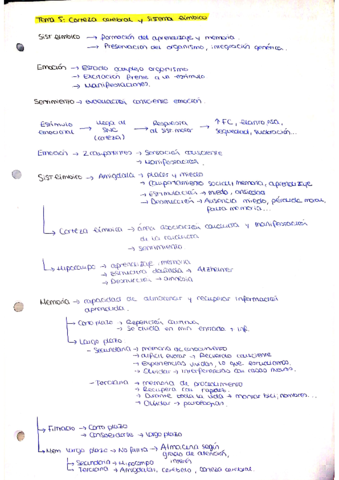 Tema 5: Corteza cerebral y sistema límbico
Sist límbico → formación del aprendizaje y memoria.
→ Preservación del organismo, integración genérica.
Emoción → Estado complejo organismo
→ Excitación frente a un estímulo
→ Manifestaciones.
Sentimiento → evaluación, consciente emoción
Estímulo emocional → llega al SNC (corteza) → Respuesta al sist motor → ↑FC,
Sequedad, sudoración...
Emoción → 2 componentes → Sensación consciente
→ Manifestación.
Sist límbico → Amígdala → placer y miedo
→ Comportamiento social, memoria, aprendizaje
→ Estimulación → miedo, ansiedad
→ Destrucción → Ausencia miedo,
falta memoria...
→ Corteza límbica → área asociación conducta y manifestación
de la conducta
→ sentimiento
→ Hipocampo → aprendizaje, memoria
→ Estructura dañada → Alzheimer
→ Destrucción → amnesia
Memoria → capacidad de almacenar y recuperar información
aprendida.
→ Corto plazo → Repetición continua
→ Se olvida en min
→ Largo plazo
- Secundaria → memoria de conocimiento
→ difícil → Recuerdo consciente
→ Experiencias vividas, lo que estudiamos.
→ Olvidar → interferencias con cosas nuevas.
- Terciaria → memoria de procedimiento
→ Recupera con rapidez.
→ Durante toda la vida → montar bici, nombre...
→ Olvidar → patologías.
→ Primaria → Corto plazo
→ Consolidarse → largo plazo
→ Mem largo plazo → No → Almacena según
grado de atención,
interés
→ Secundaria → Hipocampo
→ Terciaria → Amígdala, cerebelo, corteza cerebral.